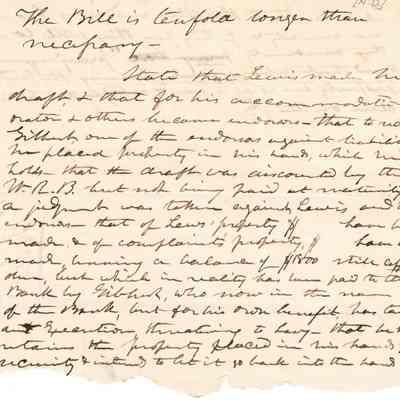 [N.D.]
The Bill is tenfold longer than
necessary —
State that Lewis made his
draft, & that for his accommodation
orator & others became endorsers — that to
Gilbert one of the endorsers against
he placed property in his hands, which he
holds — that the draft was discounted by the
W.R.B. but not being paid at maturity
a judgmt was taken against Lewis and
endorsers — that of Lewis' property $ have b
made, & of complainants property, $ have
made, leaving a balance of $1800 still
due, but which in reality has been paid to the
Bank by Gilbert, who now in the name
of the Bank, but for his own benefit, has
an Execution, threatning to levy — that he
retains the property placed in his hands,
security & intend to let it go back into the hand